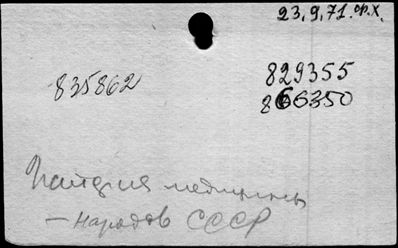 23.9.71. Ф.Х.
835862
829355
866350
медицины
— народов СССР